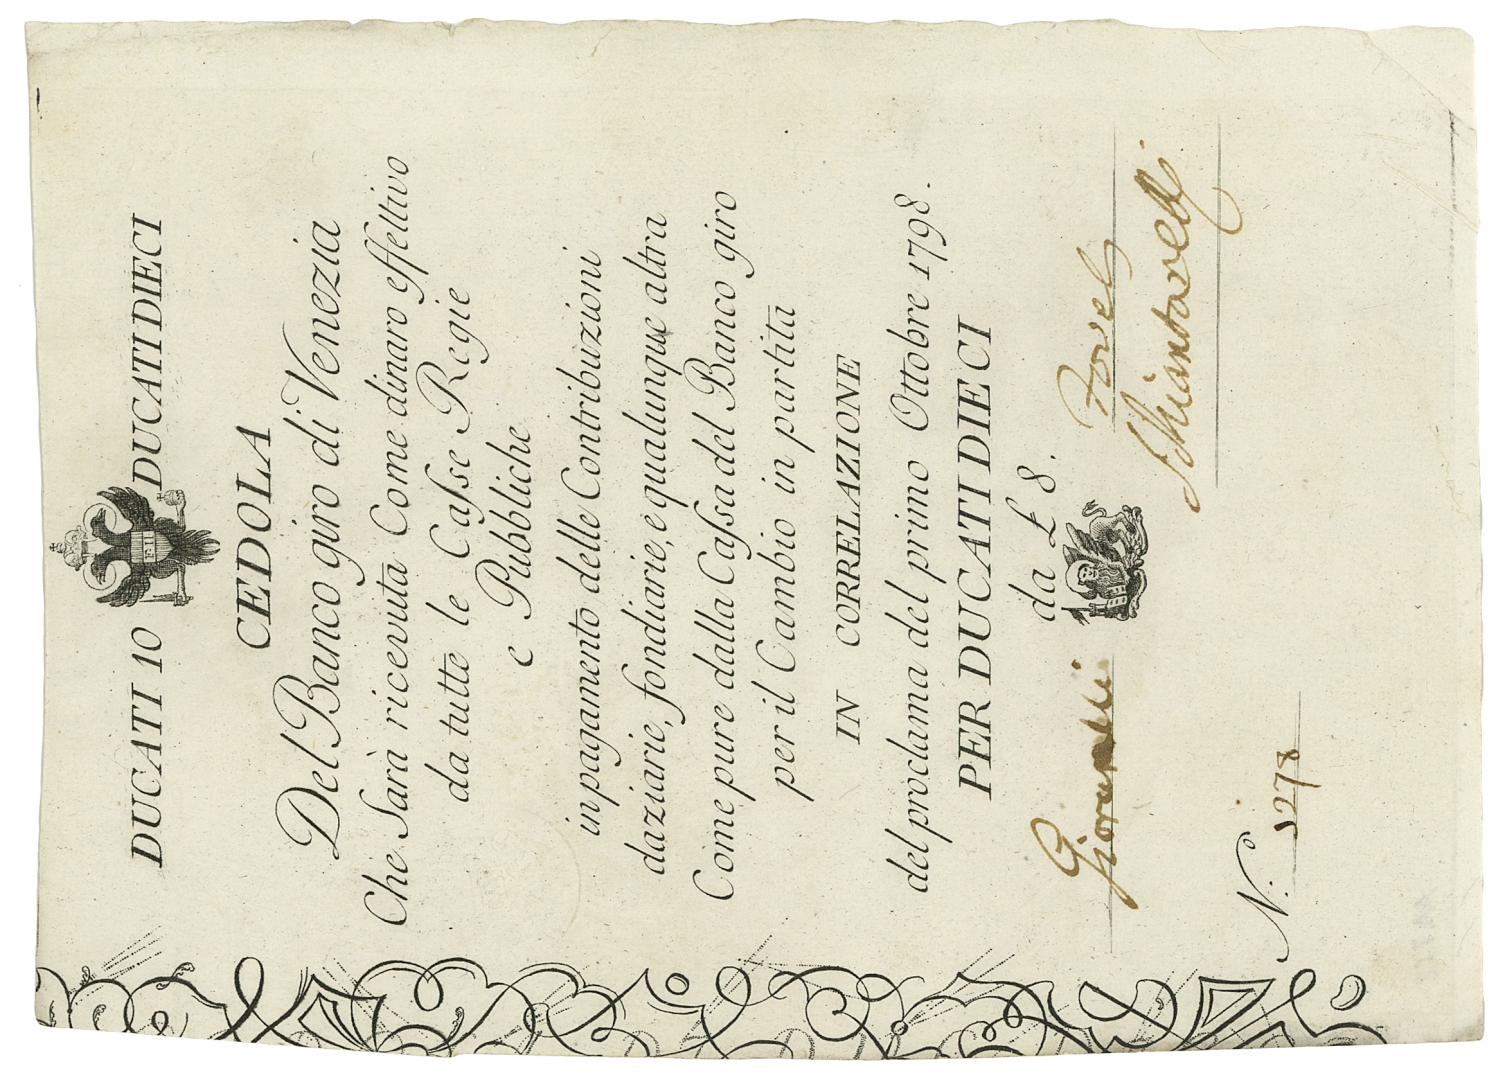 DUCATI 10 DUCATI DIECI
F II
CEDOLA
Del Banco giro di Venezia
Che Sarà ricevuta Come dinaro effettivo
da tutte le Casse Regie
e Pubbliche
in pagamento delle Contribuzioni
daziarie, fondiarie, e qualunque altra
Come pure dalla Cassa del Banco giro
per il Cambio in partita
IN CORRELAZIONE
del proclama del primo Ottobre 1798.
PER DUCATI DIECI
da £ 8.
N.